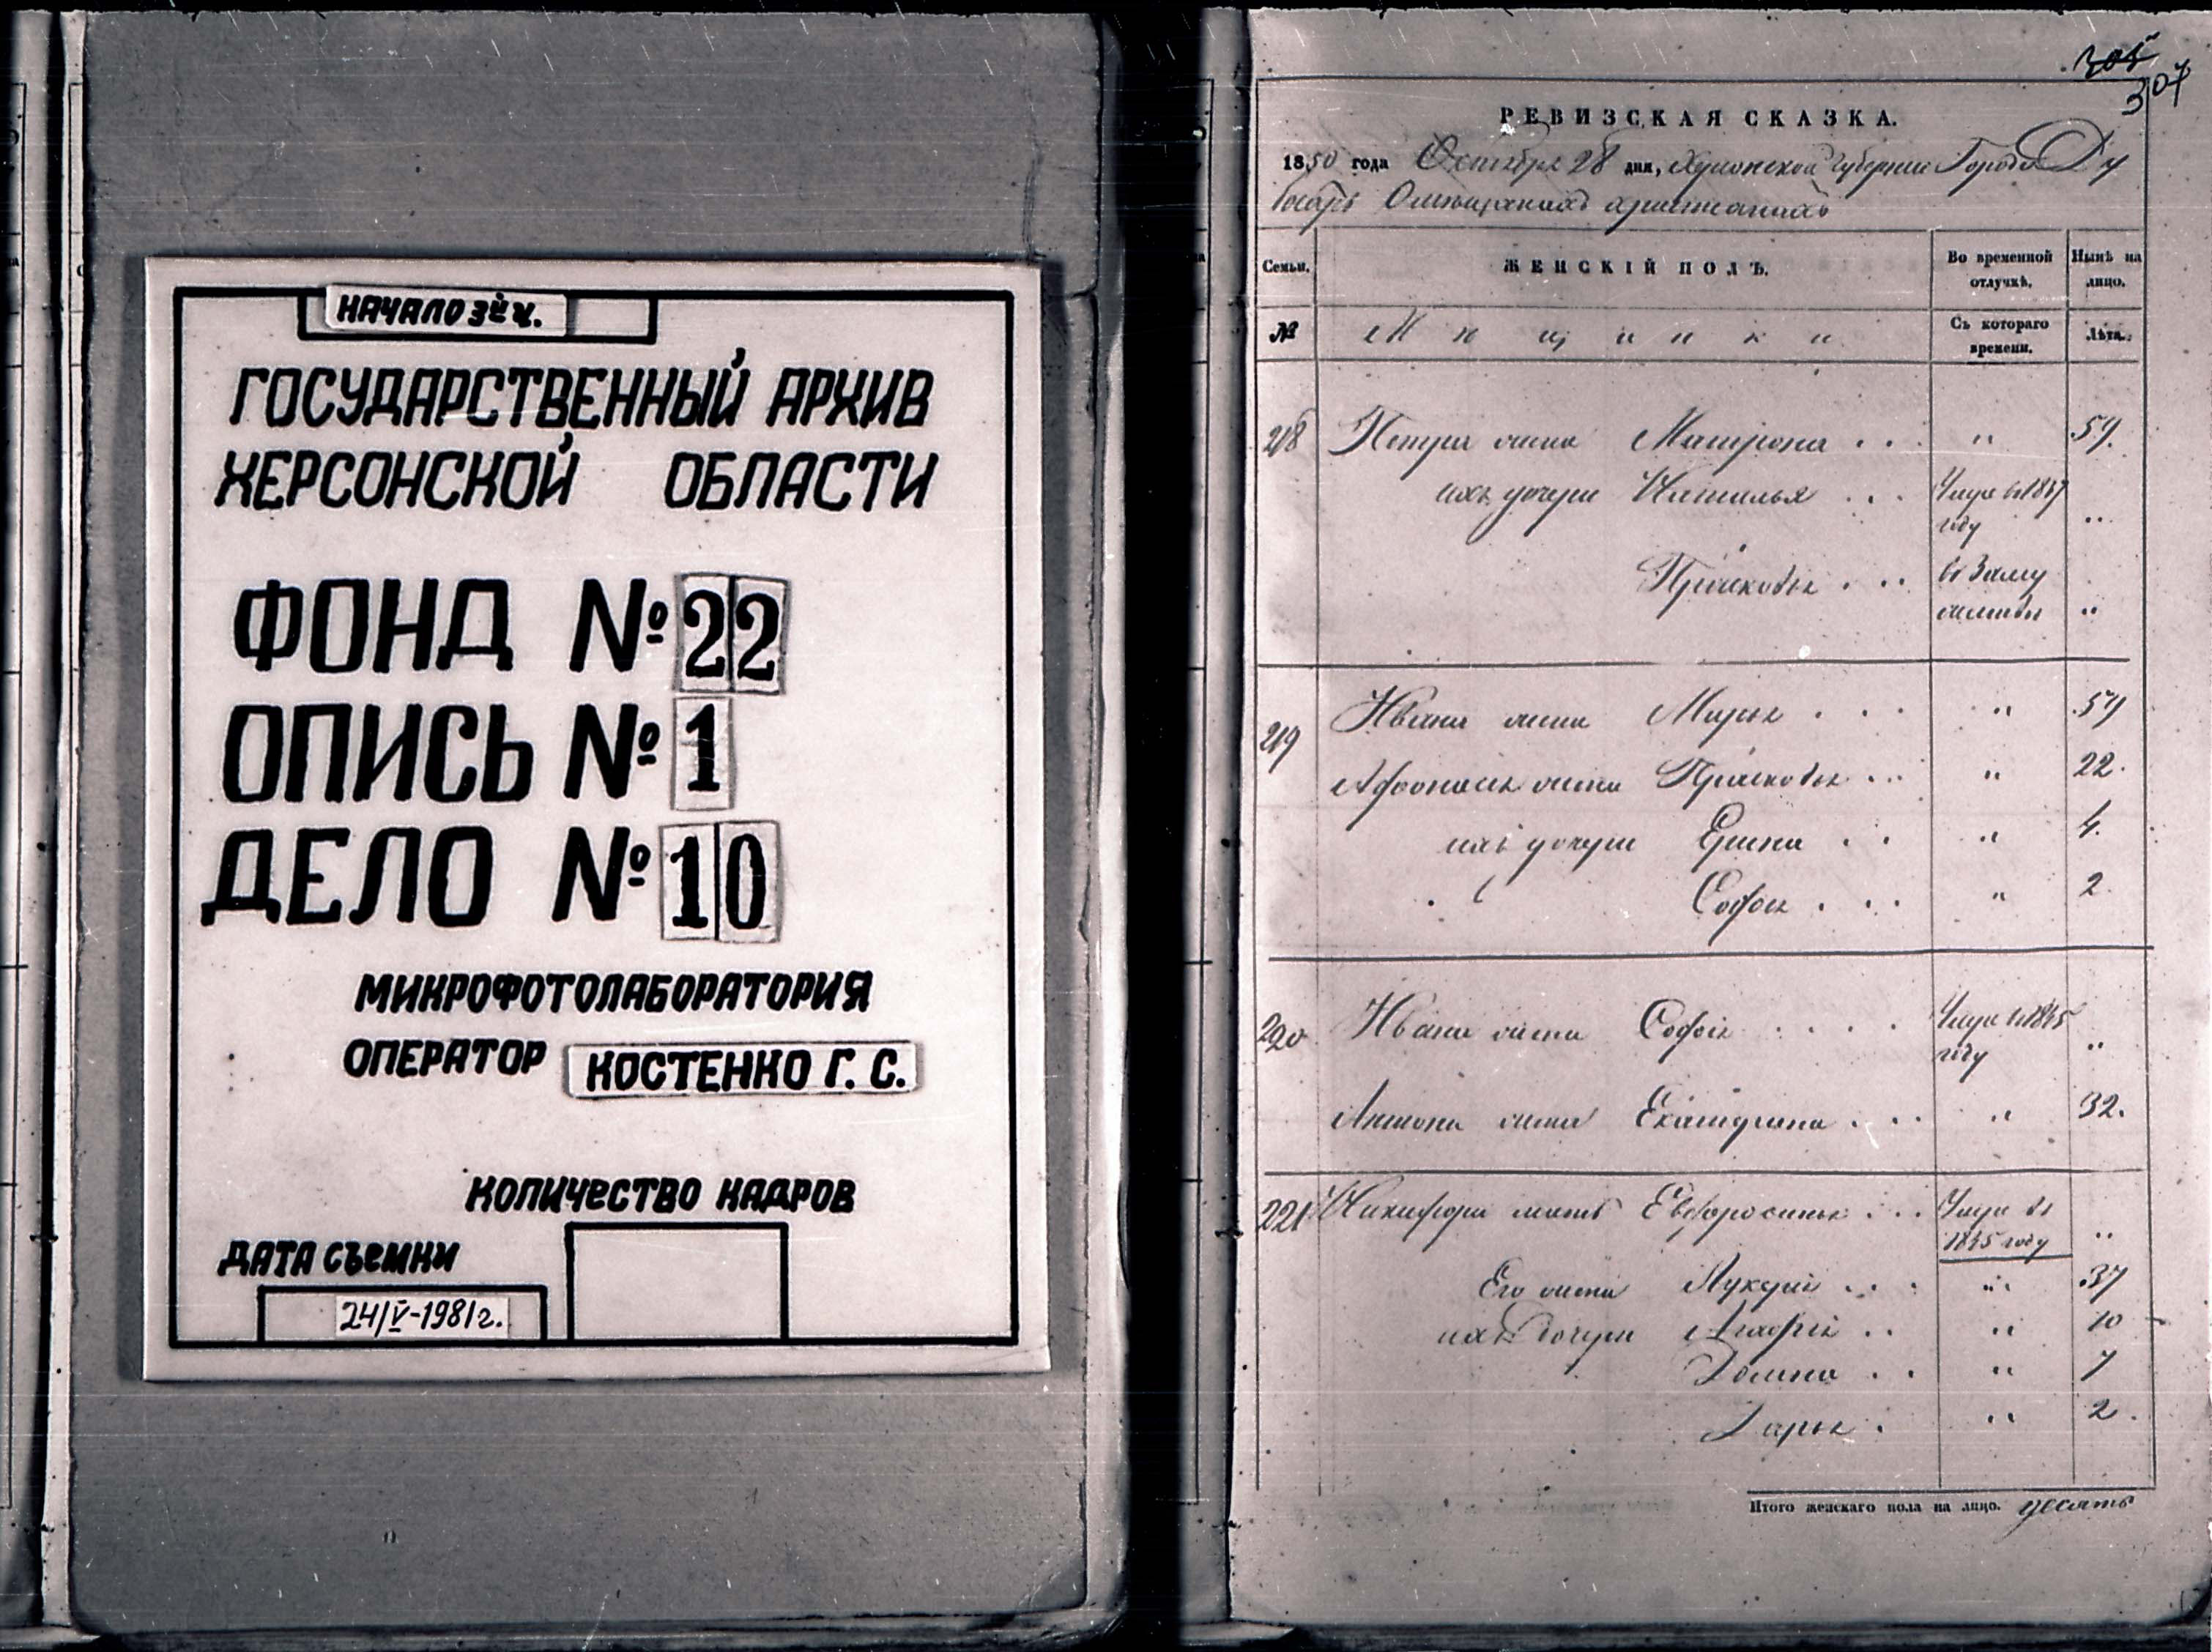 НАЧАЛО 3ей ч.
ГОСУДАРСТВЕННЫЙ АРХИВ
ХЕРСОНСКОЙ ОБЛАСТИ
ФОНД № 22
ОПИСЬ № 1
ДЕЛО № 10
МИКРОФОТОЛАБОРАТОРИЯ
ОПЕРАТОР КОСТЕНКО Г. С.
КОЛИЧЕСТВО КАДРОВ
ДАТА СЪЕМКИ
24/V-1981г.
305
307
РЕВИЗСКАЯ СКАЗКА.
1850 года Октября 28 дня, Херсонской Губернии Города Ду
босаръ О мещанахъ христианахъ
Семьи. ЖЕНСКІЙ ПОЛЪ. Во временной отлучкѣ. Нынѣ на лицо.
№ Мѣщанки Съ котораго времени. Лѣта.
218 Петра жена Матрона . . . " 59.
ихъ дочери Наталья . . . году "
Прасковья . . . "
219 Ивана жена Марья . . . " 57
Афонасья жена Прасковья . . . " 22.
ихъ дочери Ирина . . " 4.
Софья . . . " 2.
220 Ивана жена Софья . . . . году "
Антона жена Екатерина . . . " 32.
221 Никифора мать Евфросинья . . . 1845 году "
Его жена Лукерья . . . " 37
ихъ дочери Агафья . . " 10
Домна . . " 7
Дарья . " 2.
Итого женскаго пола на лицо. десять